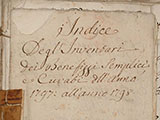 Indice
Degl'Inventari
dei Benefizj Semplici
e Curati dell'Anno
1797. all'anno 1798